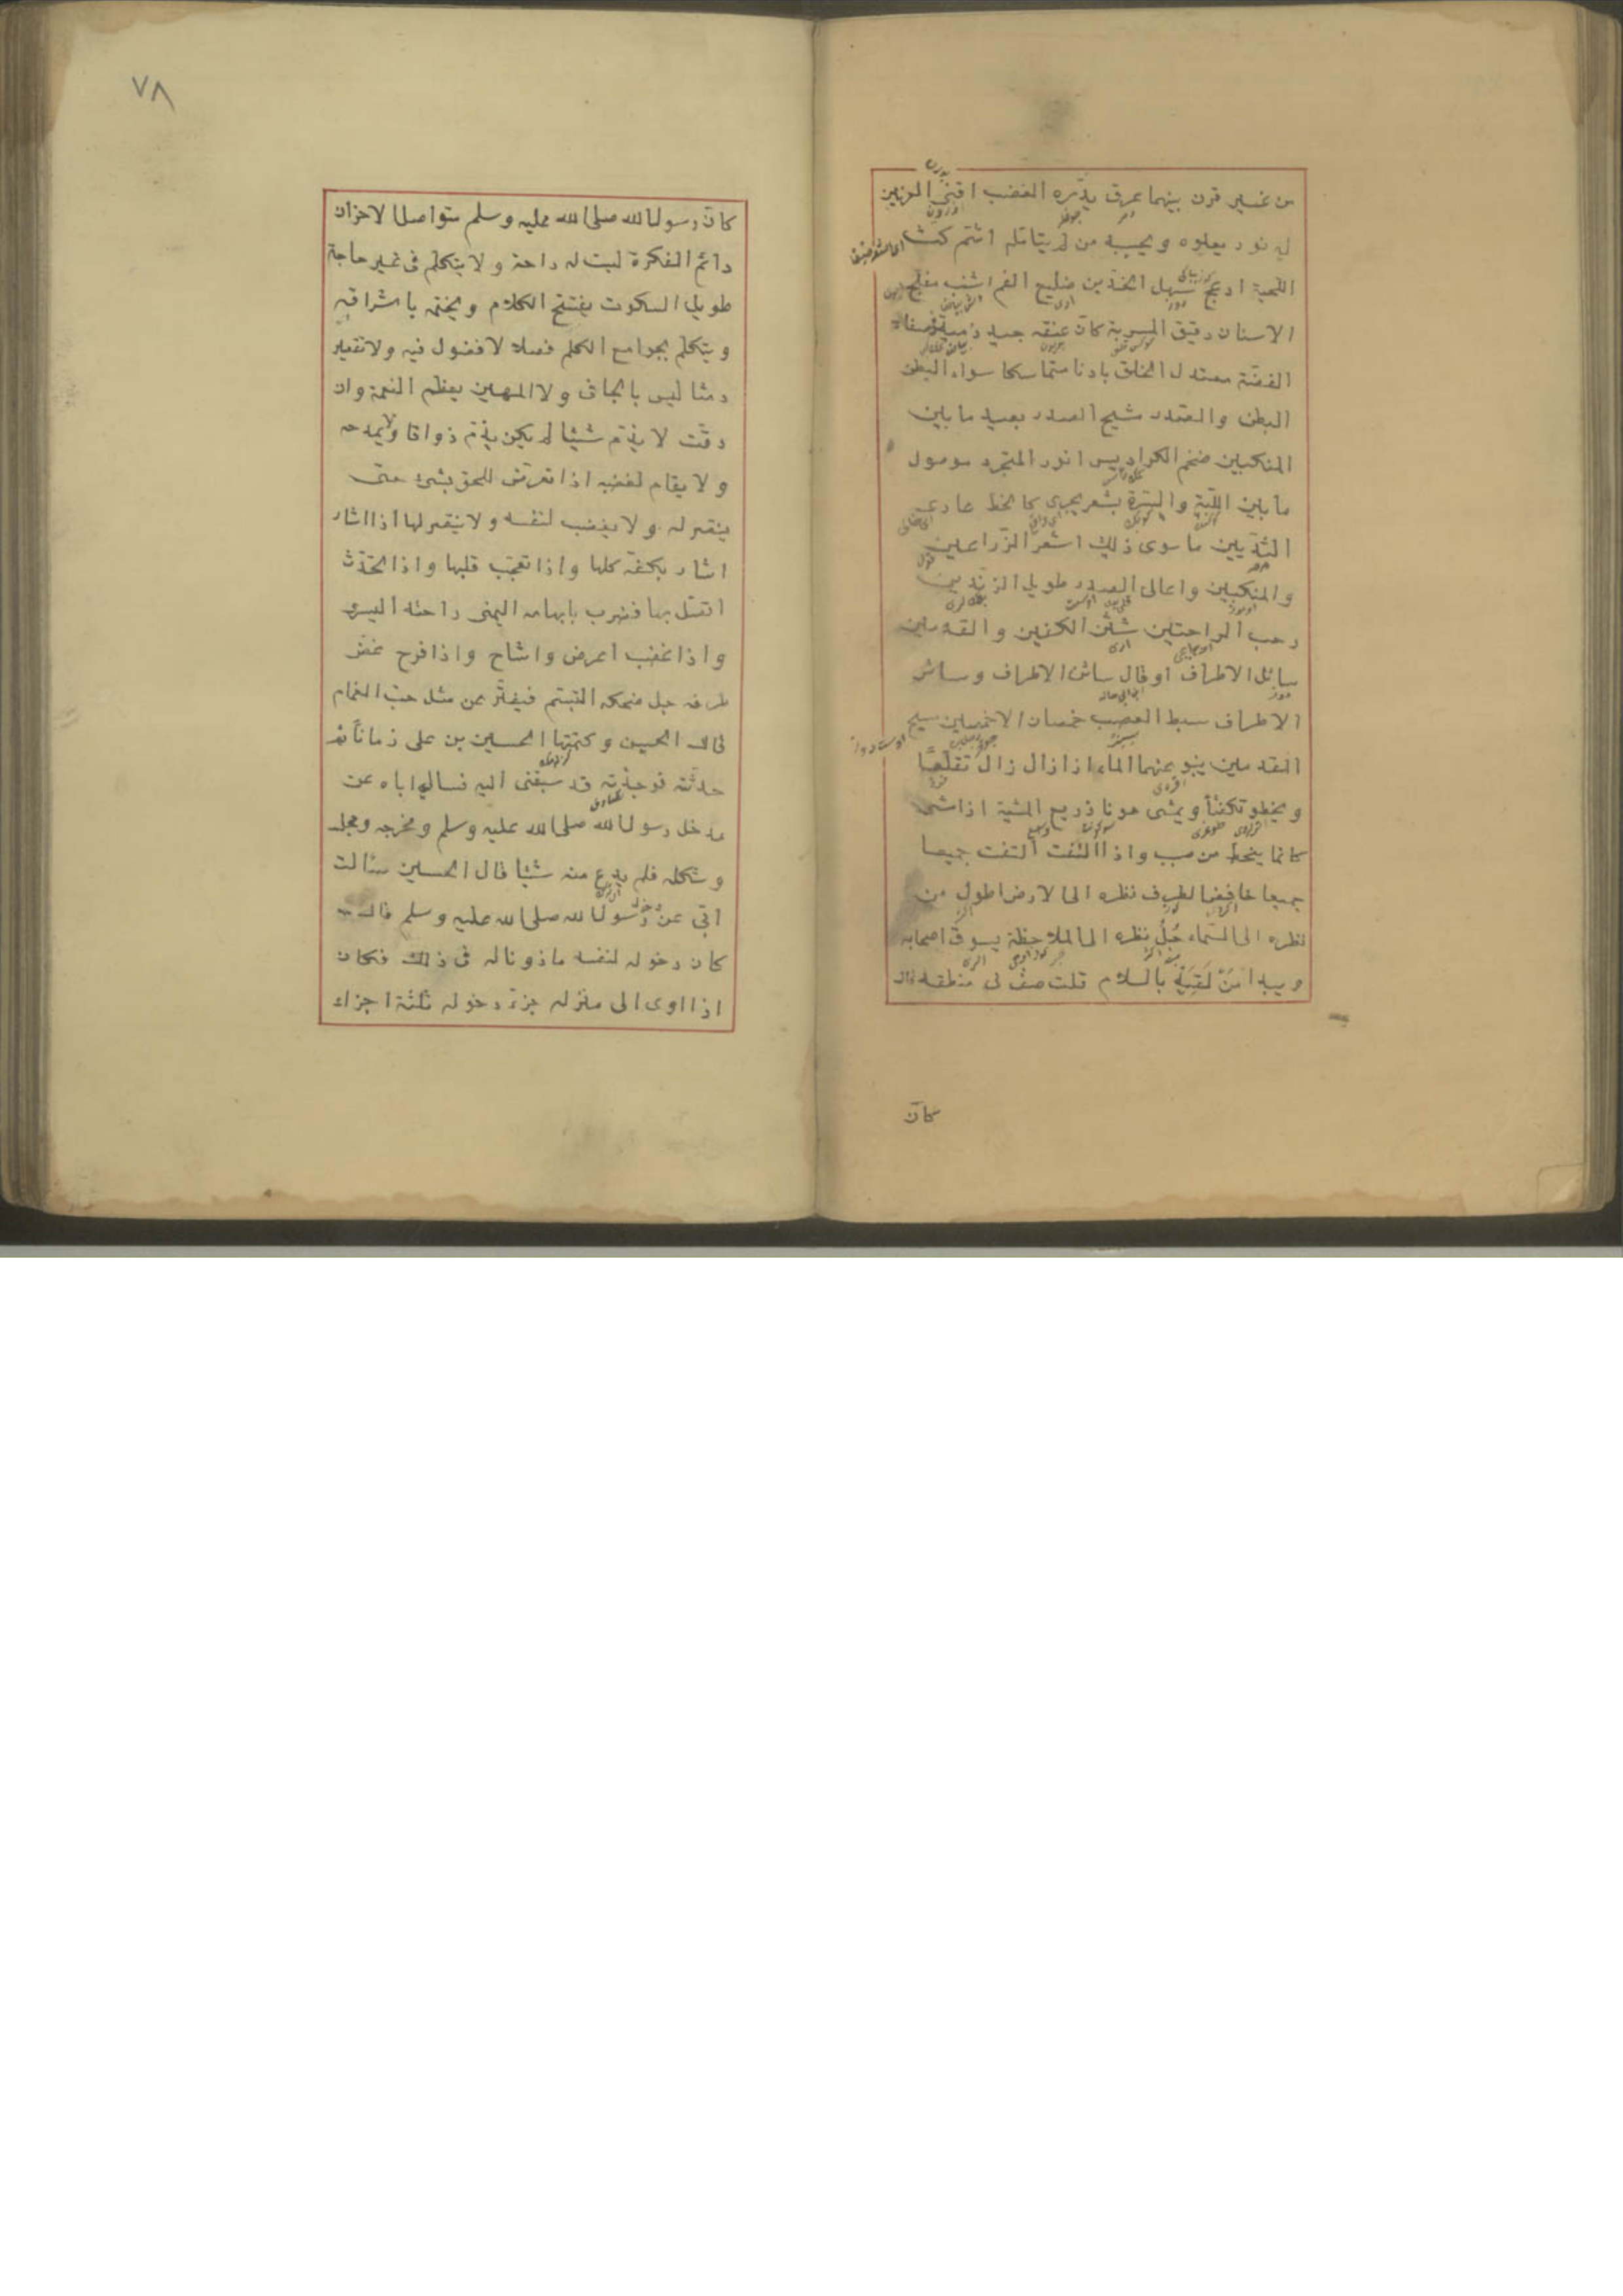 من غير قرن بينهما عرق يدّره الغضب اقنى العرنين
له نور يعلوه ويحسبه من لم يتامّله اشم كث
اللحية ادعج سهل الخدّين ضليع الفم اشنب مفلج
الاسنان دقيق المسربة كانّ عنقه جيد دمية فى صفاء
الفضّة معتدل الخلق بادنا متماسكا سواء البطن
البطن والصّدر مشيح الصدر بعيد ما بين
المنكبين ضخم الكراديس انور المتجرد موصول
ما بين اللّبّة والسّرّة بشعر يجرى كالخط عارى
الثّديين ما سوى ذلك اشعر الذّراعين
والمنكبين واعالى الصدر طويل الزّندين
رحب الراحتين شثن الكفين والقدمين
سائل الاطراف او قال سائن الاطراف وسائر
الاطراف سبط العصب خمصان الاخمصين مسيح
القدمين ينبو عنهما الماء اذا زال زال تقلّعًا
ويخطو تكفئأ ويمشى هونا ذريع المشية اذا مشى
كانما ينحط من صبب واذا التفت التفت جميعا
جميعا خافض الطرف نظره الى الارض اطول من
نظره الى السّماء جُلُّ نظره الملاحظة يسوق اصحابه
ويبدا مَنْ لَقِيَهُ بالسلام قلت صف لى منطقه قال
كانَ
٧٨
كانَ رسول الله صلى الله عليه وسلم متواصل الاحزان
دائم الفكرة ليست له راحة ولا يتكلم فى غير حاجة
طويل السكوت يفتتح الكلام ويختمه باشداقه
ويتكلم بجوامع الكلم فصلا لا فضول فيه ولا تقصير
دمثا ليس بالجافى ولا المهين يعظم النعمة وان
دقّت لا يذمّ شيئا لم يكن يذمّ ذواقا ولا يمدحه
ولا يقام لغضبه اذا تعرّض للحق بشئ حتى
ينتصر له ولا يغضب لنفسه ولا ينتصر لها اذا اشار
اشار بكفّه كلها واذا تعجّب قلبها واذا تحدّث
اتصل بها فضرب بابهامه اليمنى راحته اليسرى
واذا غضب اعرض واشاح واذا فرح غضّ
طرفه جل ضحكه التبسّم فيفترّ عن مثل حبّ الغمام
قال الحسن وكتمتها الحسين بن على زماناً ثم
حدثته فوجدته قد سبقنى اليه فسال اباه عن
مدخل رسول الله صلى الله عليه وسلم ومخرجه ومجلسه
وشكله فلم يدع منه شيئا قال الحسين سالت
ابى عن دخول رسول الله صلى الله عليه وسلم قال
كان دخوله لنفسه ماذونا له فى ذلك فكان
اذا اوى الى منزله جزء دخوله ثلثة اجزاء